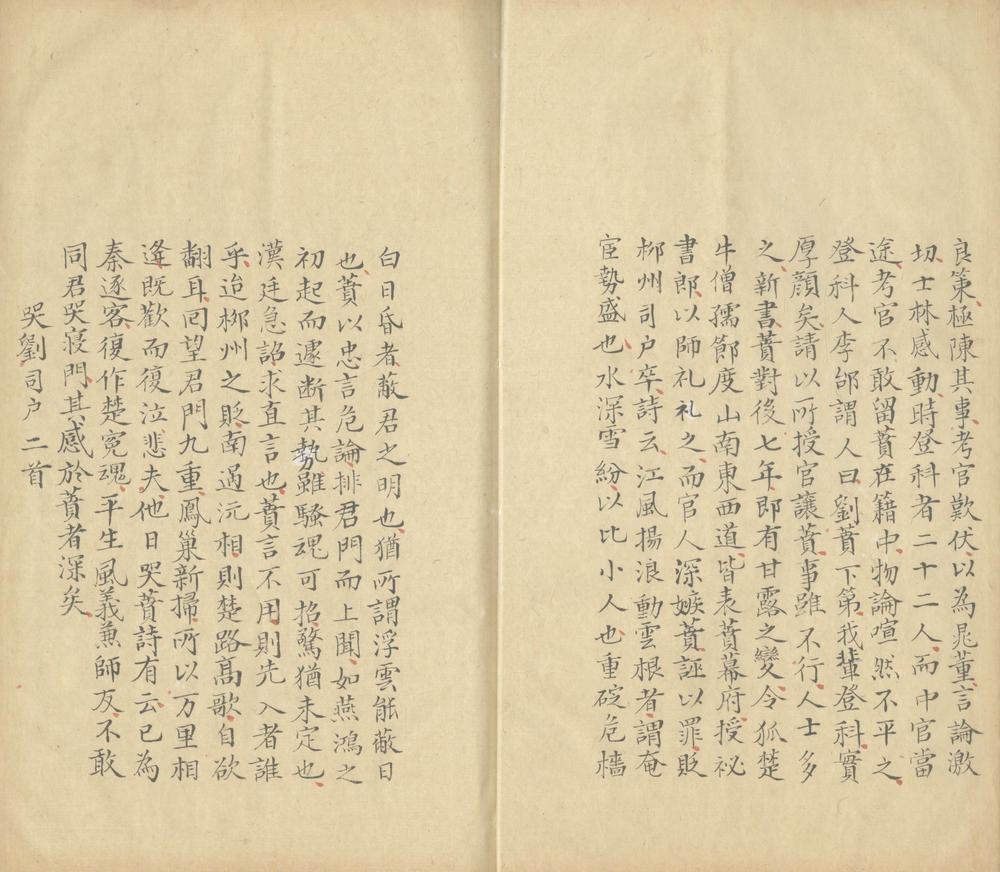 良策極陳其事考官歎伏以為晁董言論激
切士林感動時登科者二十二人而中官當
途考官不敢留蕡在籍中物論喧然不平之
登科人李郃謂人曰劉蕡下第我輩登科實
厚顏矣請以所授官讓蕡事雖不行人士多
之新書蕡對後七年即有甘露之變令狐楚
牛僧孺節度山南東西道皆表蕡幕府授祕
書郎以師礼礼之而官人深嫉蕡誣以罪貶
柳州司户卒詩云江風揚浪動雲根者謂奄
宦勢盛也水深雪紛以比小人也重碇危檣
白日昏者蔽君之明也猶所謂浮雲能蔽日
也蕡以忠言危論排君門而上聞如燕鴻之
初起而遽断其勢雖騷魂可招驚猶未定也
漢廷急詔求直言也蕡言不用則先入者誰
乎迨柳州之貶南過沅相則楚路高歌自欲
翻耳回望君門九重鳳巢新掃所以万里相
逢既歡而復泣悲夫他日哭蕡詩有云已為
秦逐客復作楚冤魂平生風義兼師友不敢
同君哭寝門其感於蕡者深矣
哭劉司户二首